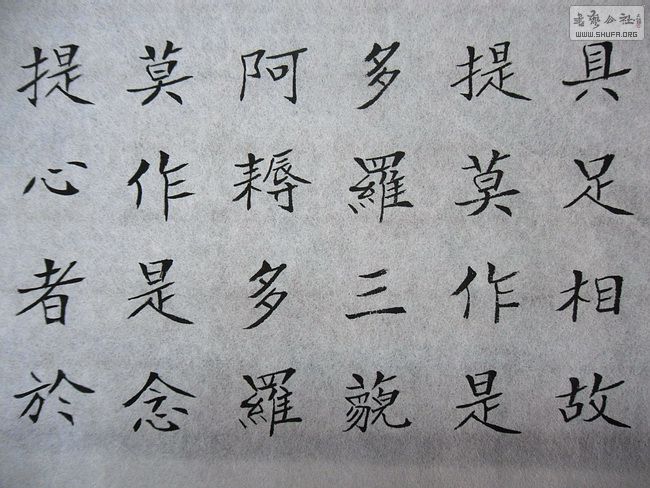 具足相故
提莫作是
多羅三藐
阿耨多羅
莫作是念
提心者於
書藝公社
WWW.SHUFA.ORG